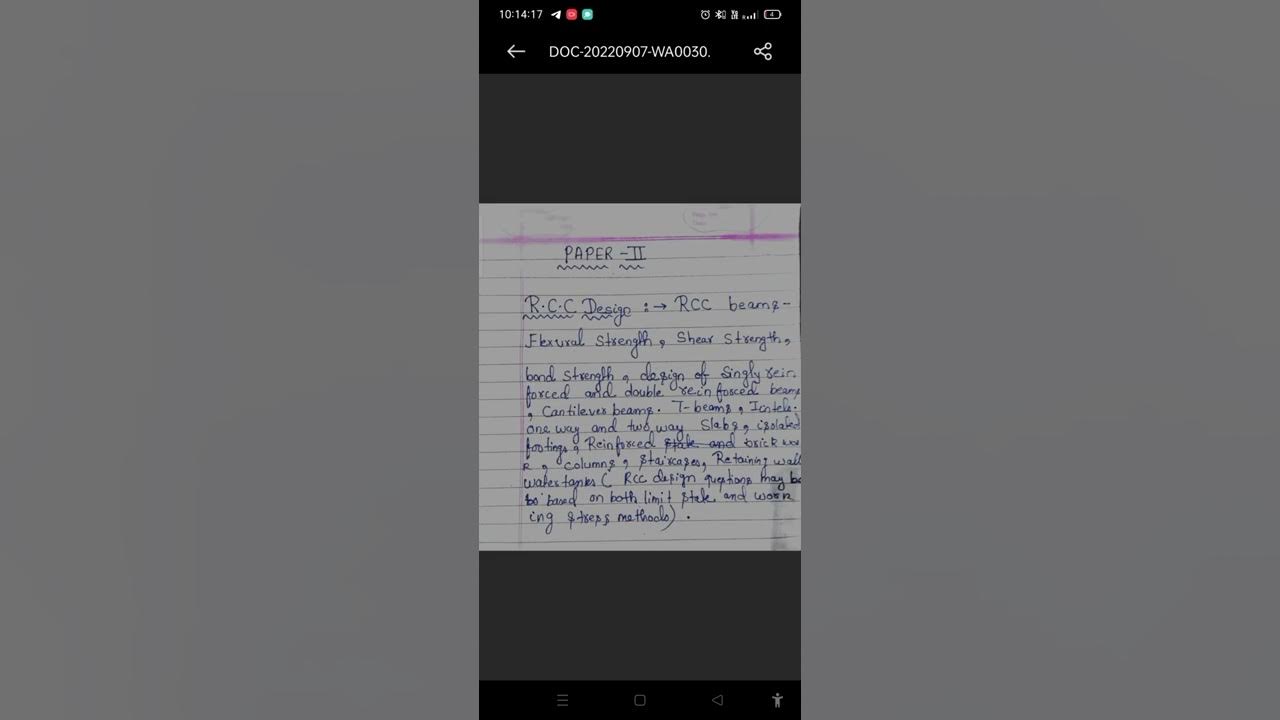 10:14:17
DOC-20220907-WA0030.
PAPER - II
R.C.C Design :→ RCC beams -
Flexural Strength, Shear Strength,
bond Strength, design of Singly rein
forced and double reinforced beams
, Cantilever beams. T-beams,
one way and two way Slabs, isolated
footings, Reinforced and brick wor
k, columns, Staircases, Retaining wall
water tanks ( RCC design questions may be
be based on both limit state and work
ing stress methods) .